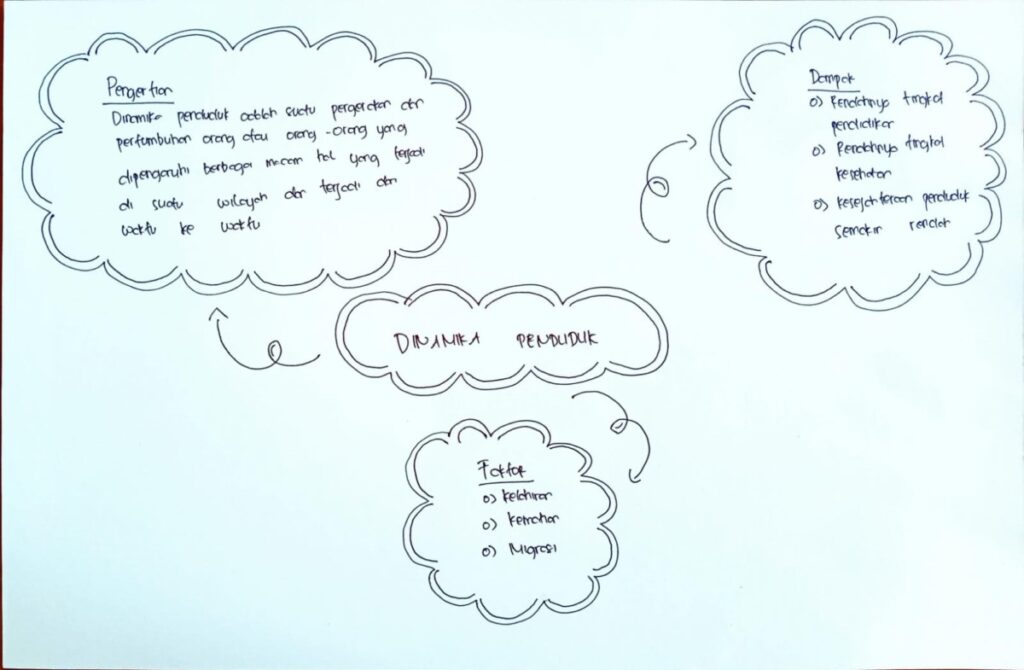 Pengertian
Dinamika penduduk adalah suatu pergerakan dan
pertumbuhan orang atau orang-orang yang
dipengaruhi berbagai macam hal yang terjadi
di suatu wilayah dan terjadi dari
waktu ke waktu
Dampak
o) Rendahnya tingkat
pendidikan
o) Rendahnya tingkat
kesehatan
o) Kesejahteraan penduduk
semakin rendah
DINAMIKA PENDUDUK
Faktor
o) Kelahiran
o)
o) Migrasi